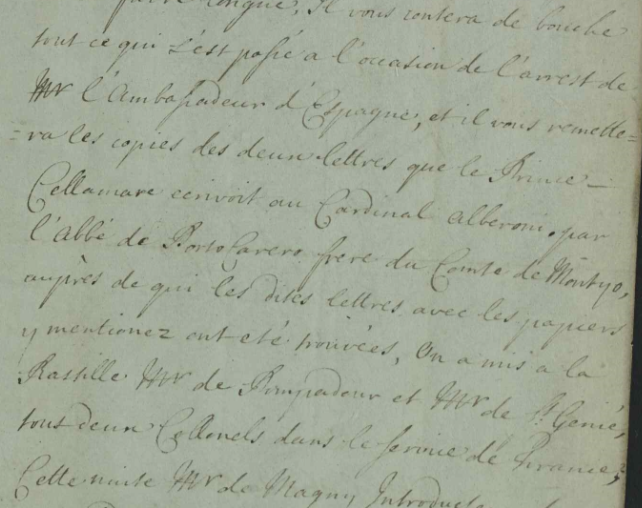 longue, Il vous contera de bouche
tout ce qui s'est passé a l'occasion de l'arrest de
Mr l'Ambassadeur d'Espagne, et il vous remette=
=ra les copies des deux lettres que le Prince
Cellamare ecrivoit au Cardinal Alberoni, par
l'abbé de Porto Carero frere du Comte de Montyo,
aupres de qui les dites lettres avec les papiers
y mentionez ont eté trouvées, On a mis a la
Bastille Mr de Pompadour et Mr de St Genié,
tout deux Collonels dans le servise de France,
Cette nuite Mr de Magny Introducte